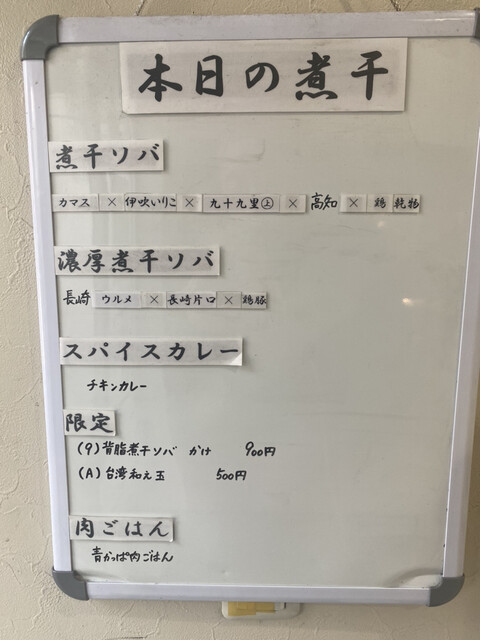 本日の煮干
煮干ソバ
カマス × 伊吹いりこ × 九十九里㊤ × 高知 × 鶏 乾物
濃厚煮干ソバ
長崎 ウルメ × 長崎片口 × 鶏豚
スパイスカレー
チキンカレー
限定
(9) 背脂煮干ソバ かけ 900円
(A) 台湾和え玉 500円
肉ごはん
青かっぱ肉ごはん